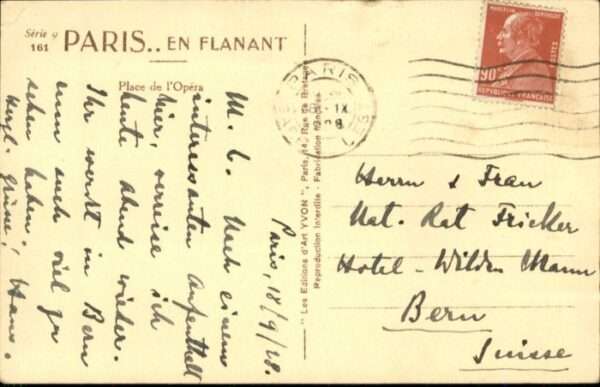 Série 9
161
PARIS.. EN FLANANT
Place de l'Opéra
Paris, 18/9/28.
M. L. Nach einem
interessanten Aufenthalt
hier, verreise ich
heute Abend wieder.
Ihr werdt in Bern
nun auch viel zu
sehen haben.
Herzl. Grüsse! Hans.
" Les Editions d'Art YVON ", Paris, 14, Rue de Bretagne
Reproduction Interdite - Fabrication Française
PARIS
IX
28
MARCELIN BERTHELOT
POSTES
90
REPUBLIQUE FRANÇAISE
Herrn & Frau
Nat. Rat Fricker
Hotel-Wilden Mann
Bern
Suisse